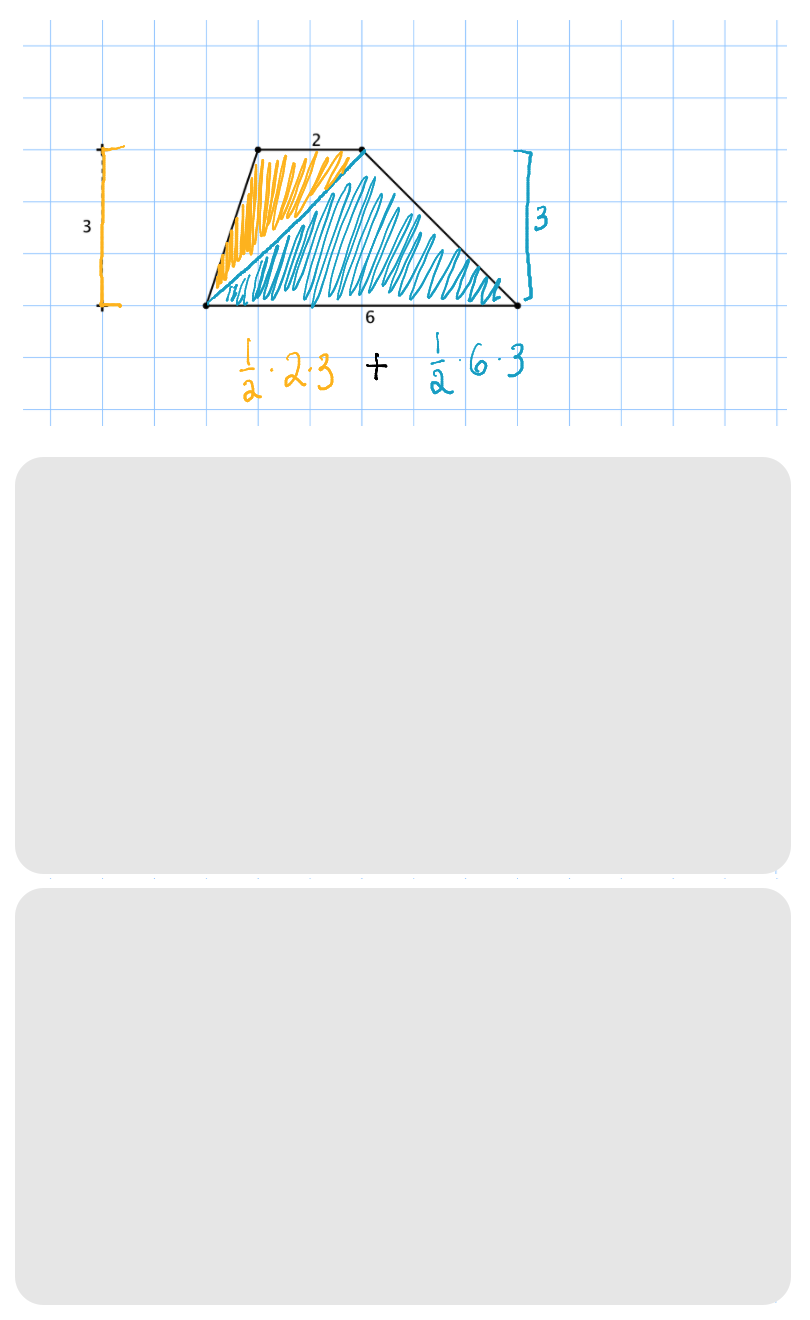 2
3
3
6
1/2 · 2 · 3 + 1/2 · 6 · 3